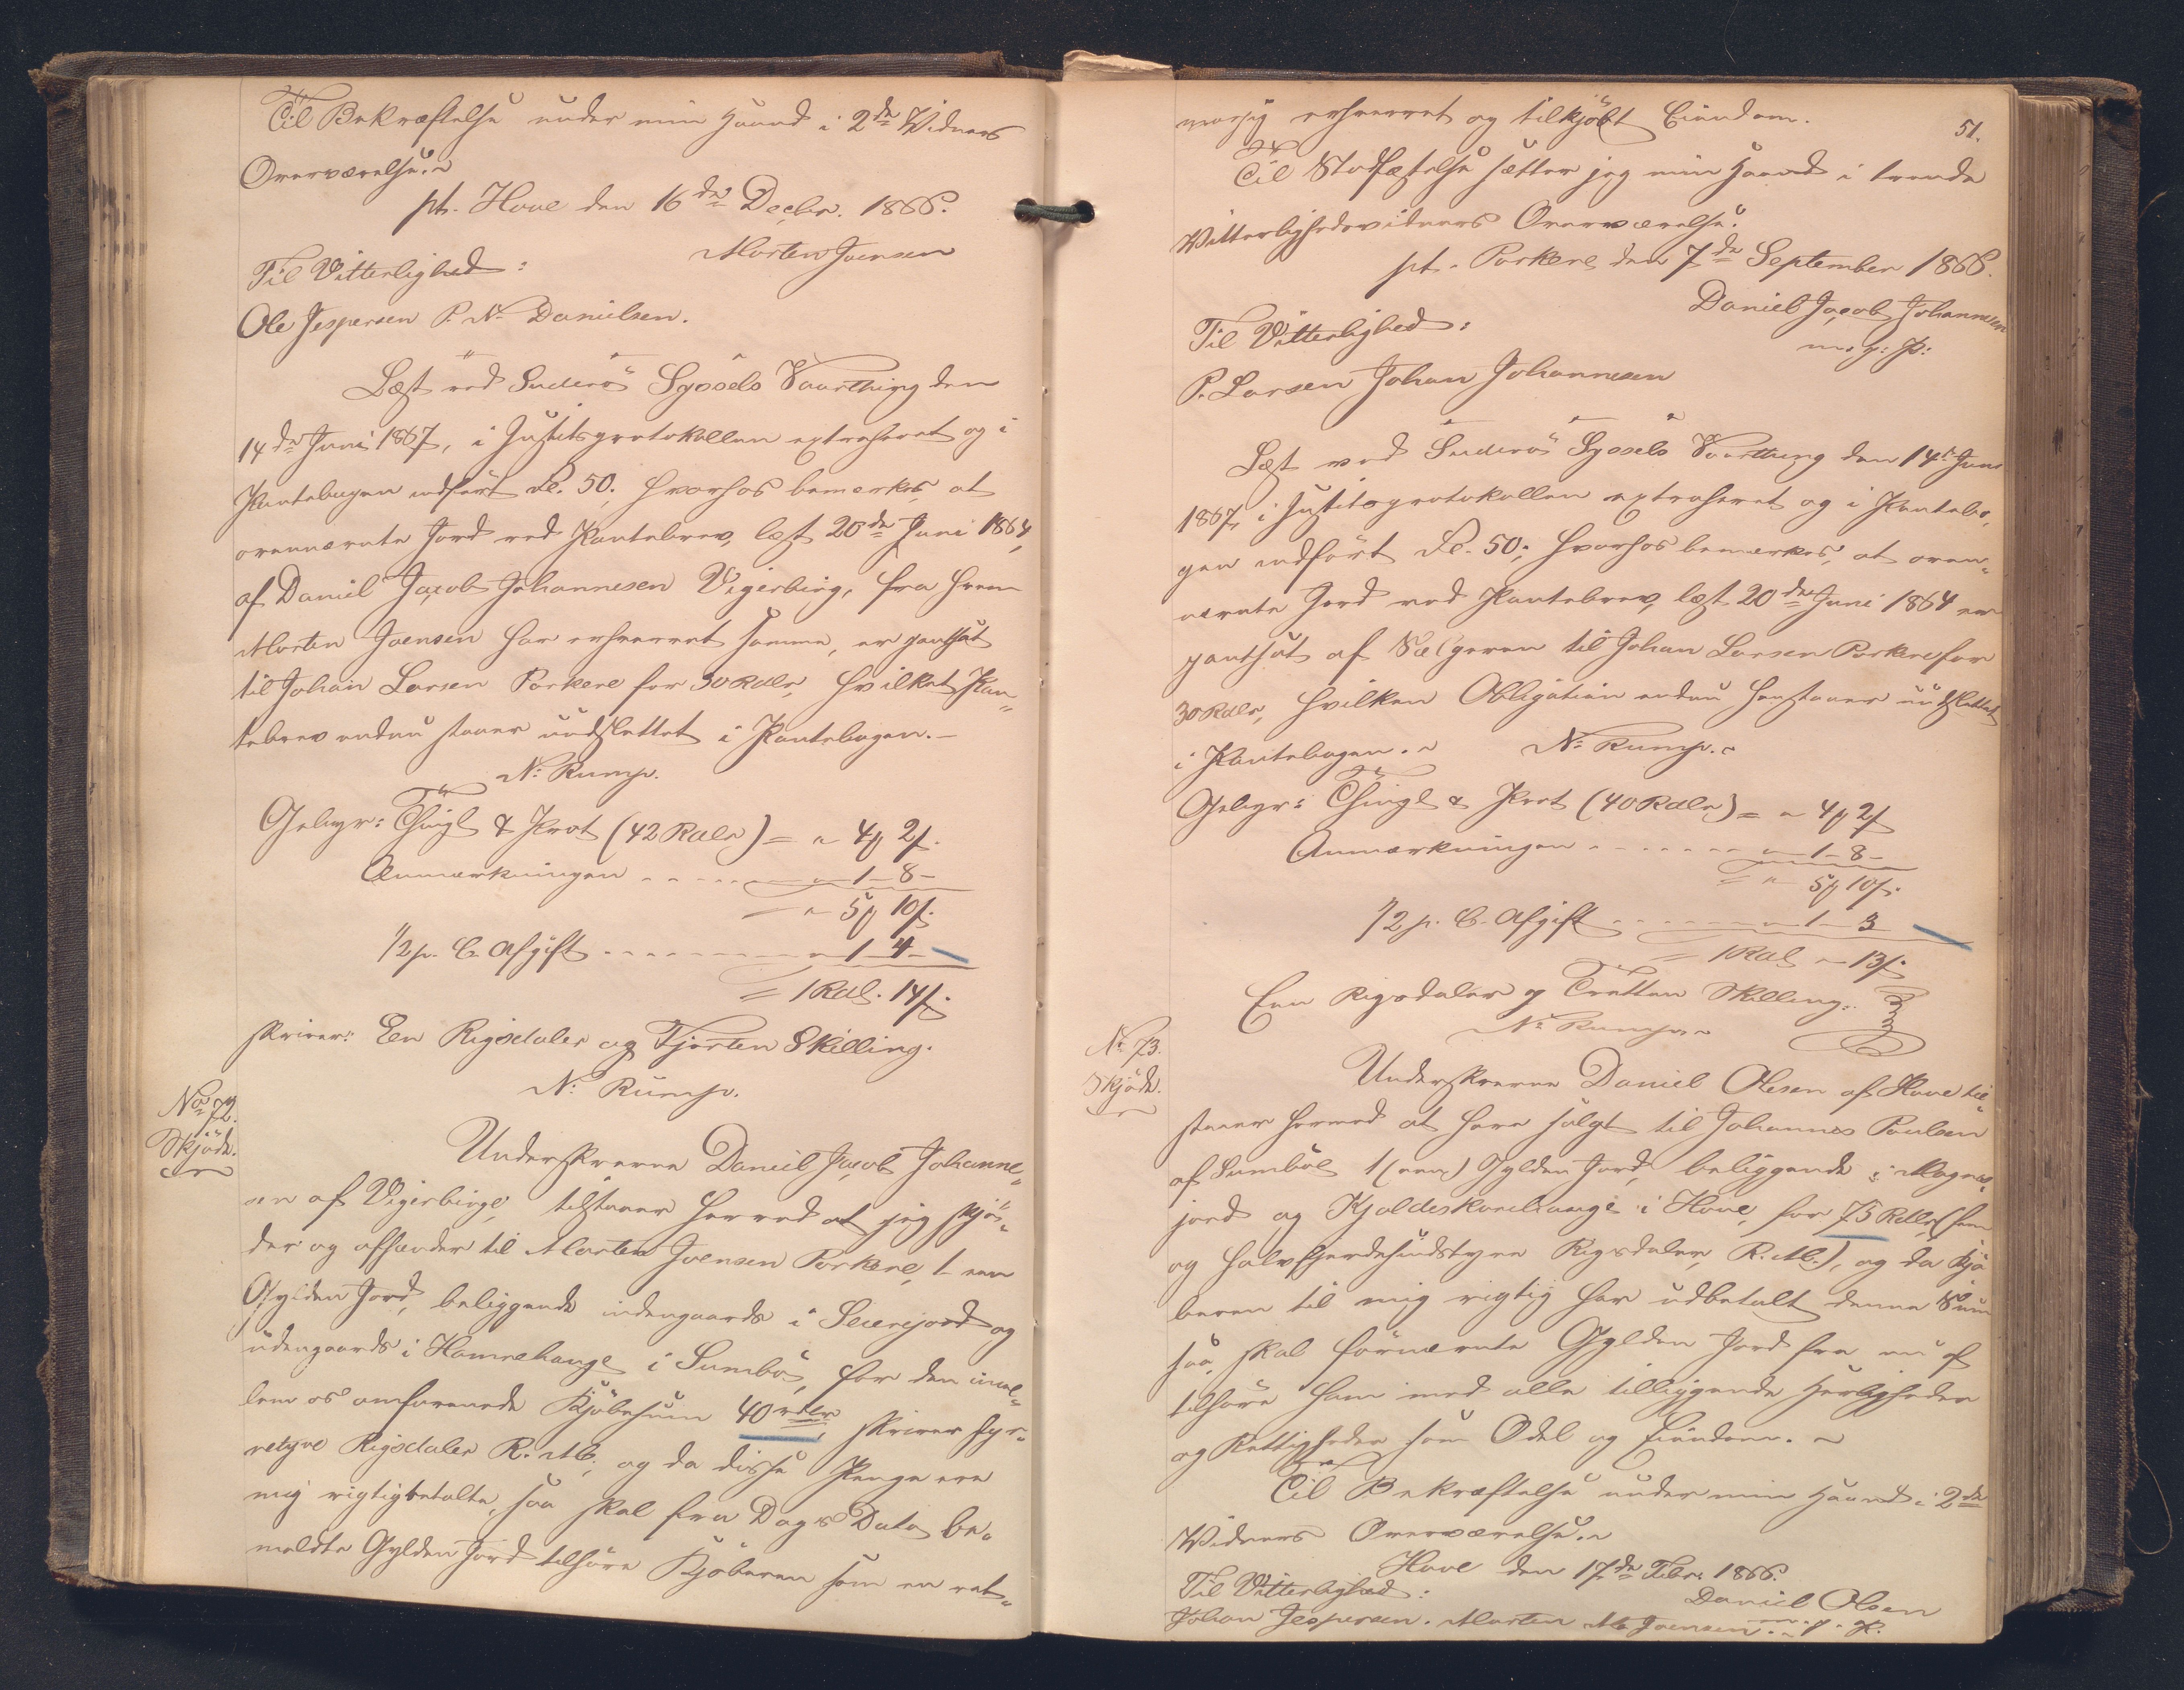 Til Bekræftelse under min Haand i 2de Vidners
Overværelse.
pt. Hove den 16de Decbr. 1866.
Morten Joensen
Til Vitterlighed:
Ole Jespersen P. N. Danielsen.
Læst ved Suderö Syssels Vaarthing den
14de Juni 1867, i Justitsprotokollen extraheret og i
Pantebogen indført Fol. 50. hvorhos bemærkes at
ovennævnte Jord ved Pantebrev, læst 20de Juni 1864,
af Daniel Jacob Johannesen Vigerbirg, fra hvem
Morten Joensen har erhvervet samme, er pantsat
til Johan Larsen Porkere for 30 Rdlr, hvilket Pan„
tebrev endnu staaer uudslettet i Pantebogen.-
N: Rump.
Gebyr: Thingl & Prot (42 Rdlr) = " 4 ꝟ 2 s.
Anmærkningen - - - - " 1 - 8 -
= " 5 ꝟ 10 s.
1/2 p. C. Afgift - - - - - - - " 1 - 4 -
= 1 Rdl. 14 s.
skriver: Een Rigsdaler og Fjorten Skilling.
N: Rump.
No 72.
Skjöde.
Underskrevne Daniel Jacob Johanne„
sen af Vigerbirge, tilstaaer herved at jeg skjö„
der og afhænder til Morten Joensen Porkere, 1 - een
Gylden Jord, beliggende indengaards i Leirejord og
udengaards i Hamrehauge i Sumbö, for den imel„
lem os omforenede Kjöbesum 40 rdlr, skriver fyr„
retyve Rigsdaler R. Mt., og da disse Penge ere
mig rigtig betalte, saa skal fra Dags Dato be„
meldte Gylden Jord tilhøre Kjöberen som en ret„
51.
mæssig erhvervet og tilkjöbt Eiendom.
Til Stadfæstelse sætter jeg min Haand i tvende
Vitterlighedsvidners Overværelse.
pt. Porkere den 7de September 1866.
Daniel Jacob Johannesen
m. f: P:
Til Vitterlighed:
P. Larsen Johan Johannesen
Læst ved Suderö Syssels Vaarthing den 14de Juni
1867, i Justitsprotokollen extraheret og i Pantebo„
gen indfört Fol. 50; hvorhos bemærkes, at oven„
nævnte Jord ved Pantebrev, læst 20de Juni 1864 er
pantsat af Sælgeren til Johan Larsen Porkere for
30 Rdlr, hvilken Obligation endnu henstaaer uudslettet
i Pantebogen. N: Rump.
Gebyr: Thingl & Prot (40 Rdlr) = " 4 ꝟ 2 s
Anmærkningen - - - - - - " 1 - 8 -
= " 5 ꝟ 10 s.
1/2 p. C. Afgift - - - - - - " 1 - 3
= 1 Rdl " 13 s.
Een Rigsdaler og Tretten Skilling.
N: Rump.
No 73.
Skjöde.
Underskrevne Daniel Olesen af Hove til„
staaer herved at have solgt til Johannes Poulsen
af Sumböe 1 (een) Gylden Jord, beliggende i Magnus„
jord og Kjoldeskorehauge i Hove, for 75 Rdlr (fem
og halvfjerdesindstyve Rigsdaler, R. Mt.), og da Kjö
beren til mig rigtig har udbetalt denne Sum
saa skal førnævnte Gylden Jord fra nu af
tilhöre ham med alle tilliggende Herligheder
og Rettigheder som Odel og Eiendom.
Til Bekræftelse under min Haand i 2de
Vidners Overværelse.
Hove den 17de Febr. 1866.
Til Vitterlighed:
Daniel Olsen
Johan Jespersen. Morten M. Joensen. m. f. P.